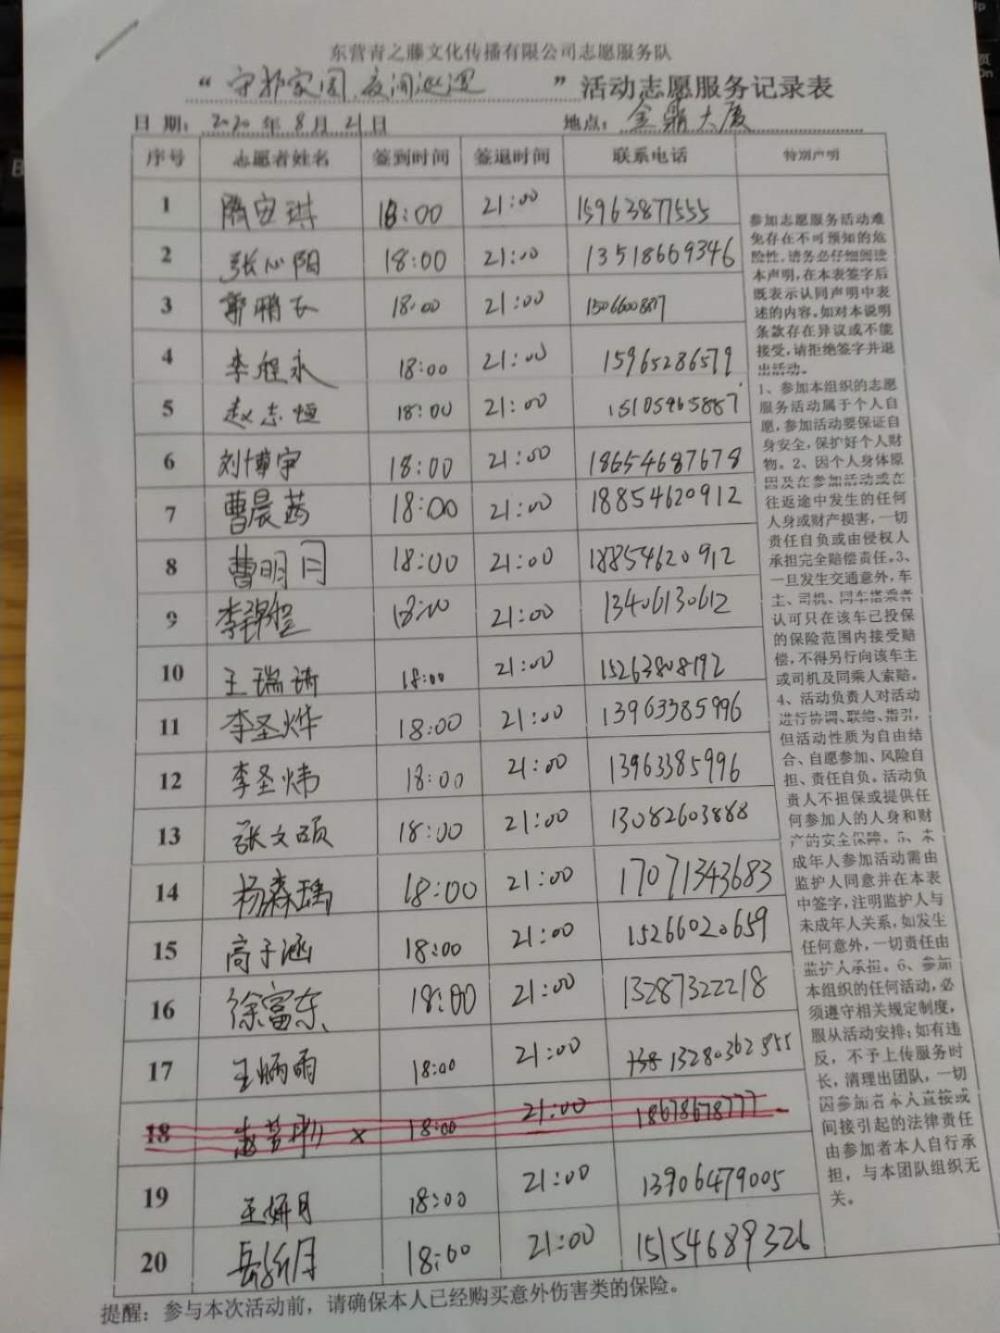 东营青之藤文化传播有限公司志愿服务队
“守护家园,夜间巡逻”活动志愿服务记录表
日期: 2020年8月21日 地点: 金鼎大厦
序号 志愿者姓名 签到时间 签退时间 联系电话 特别声明
1 18:00 21:00 15963877555
2 张心阳 18:00 21:00 13518669346
3 郭鹏飞 18:00 21:00
4 李 永 18:00 21:00 15965286579
5 赵志恒 18:00 21:00 15105465887
6 刘博宇 18:00 21:00 18654687678
7 曹晨茜 18:00 21:00 18854620912
8 曹明月 18:00 21:00 18854620912
9 李 18:00 21:00 13406130612
10 王瑞琦 18:00 21:00 15263808192
11 李圣烨 18:00 21:00 13963385996
12 李圣炜 18:00 21:00 13963385996
13 张文硕 18:00 21:00 13082603888
14 杨森瑀 18:00 21:00 17071343683
15 高子涵 18:00 21:00 15266020659
16 徐富东 18:00 21:00 13287322218
17 王炳雨 18:00 21:00 138 13280362855
18 赵 × 18:00 21:00 18678678777
19 王妍月 18:00 21:00 13906479005
20 岳 月 18:00 21:00 15154689326
参加志愿服务活动难
免存在不可预知的危
险性,请务必仔细阅读
本声明,在本表签字后
既表示认同声明中表
述的内容。如对本说明
条款存在异议或不能
接受,请拒绝签字并退
出活动。
1、参加本组织的志愿
服务活动属于个人自
愿,参加活动要保证自
身安全,保护好个人财
物。2、因个人身体原
因及在参加活动或在
往返途中发生的任何
人身或财产损害,一切
责任自负或由侵权人
承担完全赔偿责任。3、
一旦发生交通意外,车
主、司机、同车搭乘者
认可只在该车已投保
的保险范围内接受赔
偿,不得另行向该车主
或司机及同乘人索赔。
4、活动负责人对活动
进行协调、联络、指引,
但活动性质为自由结
合、自愿参加、风险自
担、责任自负。活动负
责人不担保或提供任
何参加人的人身和财
产的安全保障。5、未
成年人参加活动需由
监护人同意并在本表
中签字,注明监护人与
未成年人关系,如发生
任何意外,一切责任由
监护人承担。6、参加
本组织的任何活动,必
须遵守相关规定制度,
服从活动安排;如有违
反,不予上传服务时
长,清理出团队,一切
因参加者本人直接或
间接引起的法律责任
由参加者本人自行承
担,与本团队组织无
关。
提醒:参与本次活动前,请确保本人已经购买意外伤害类的保险。